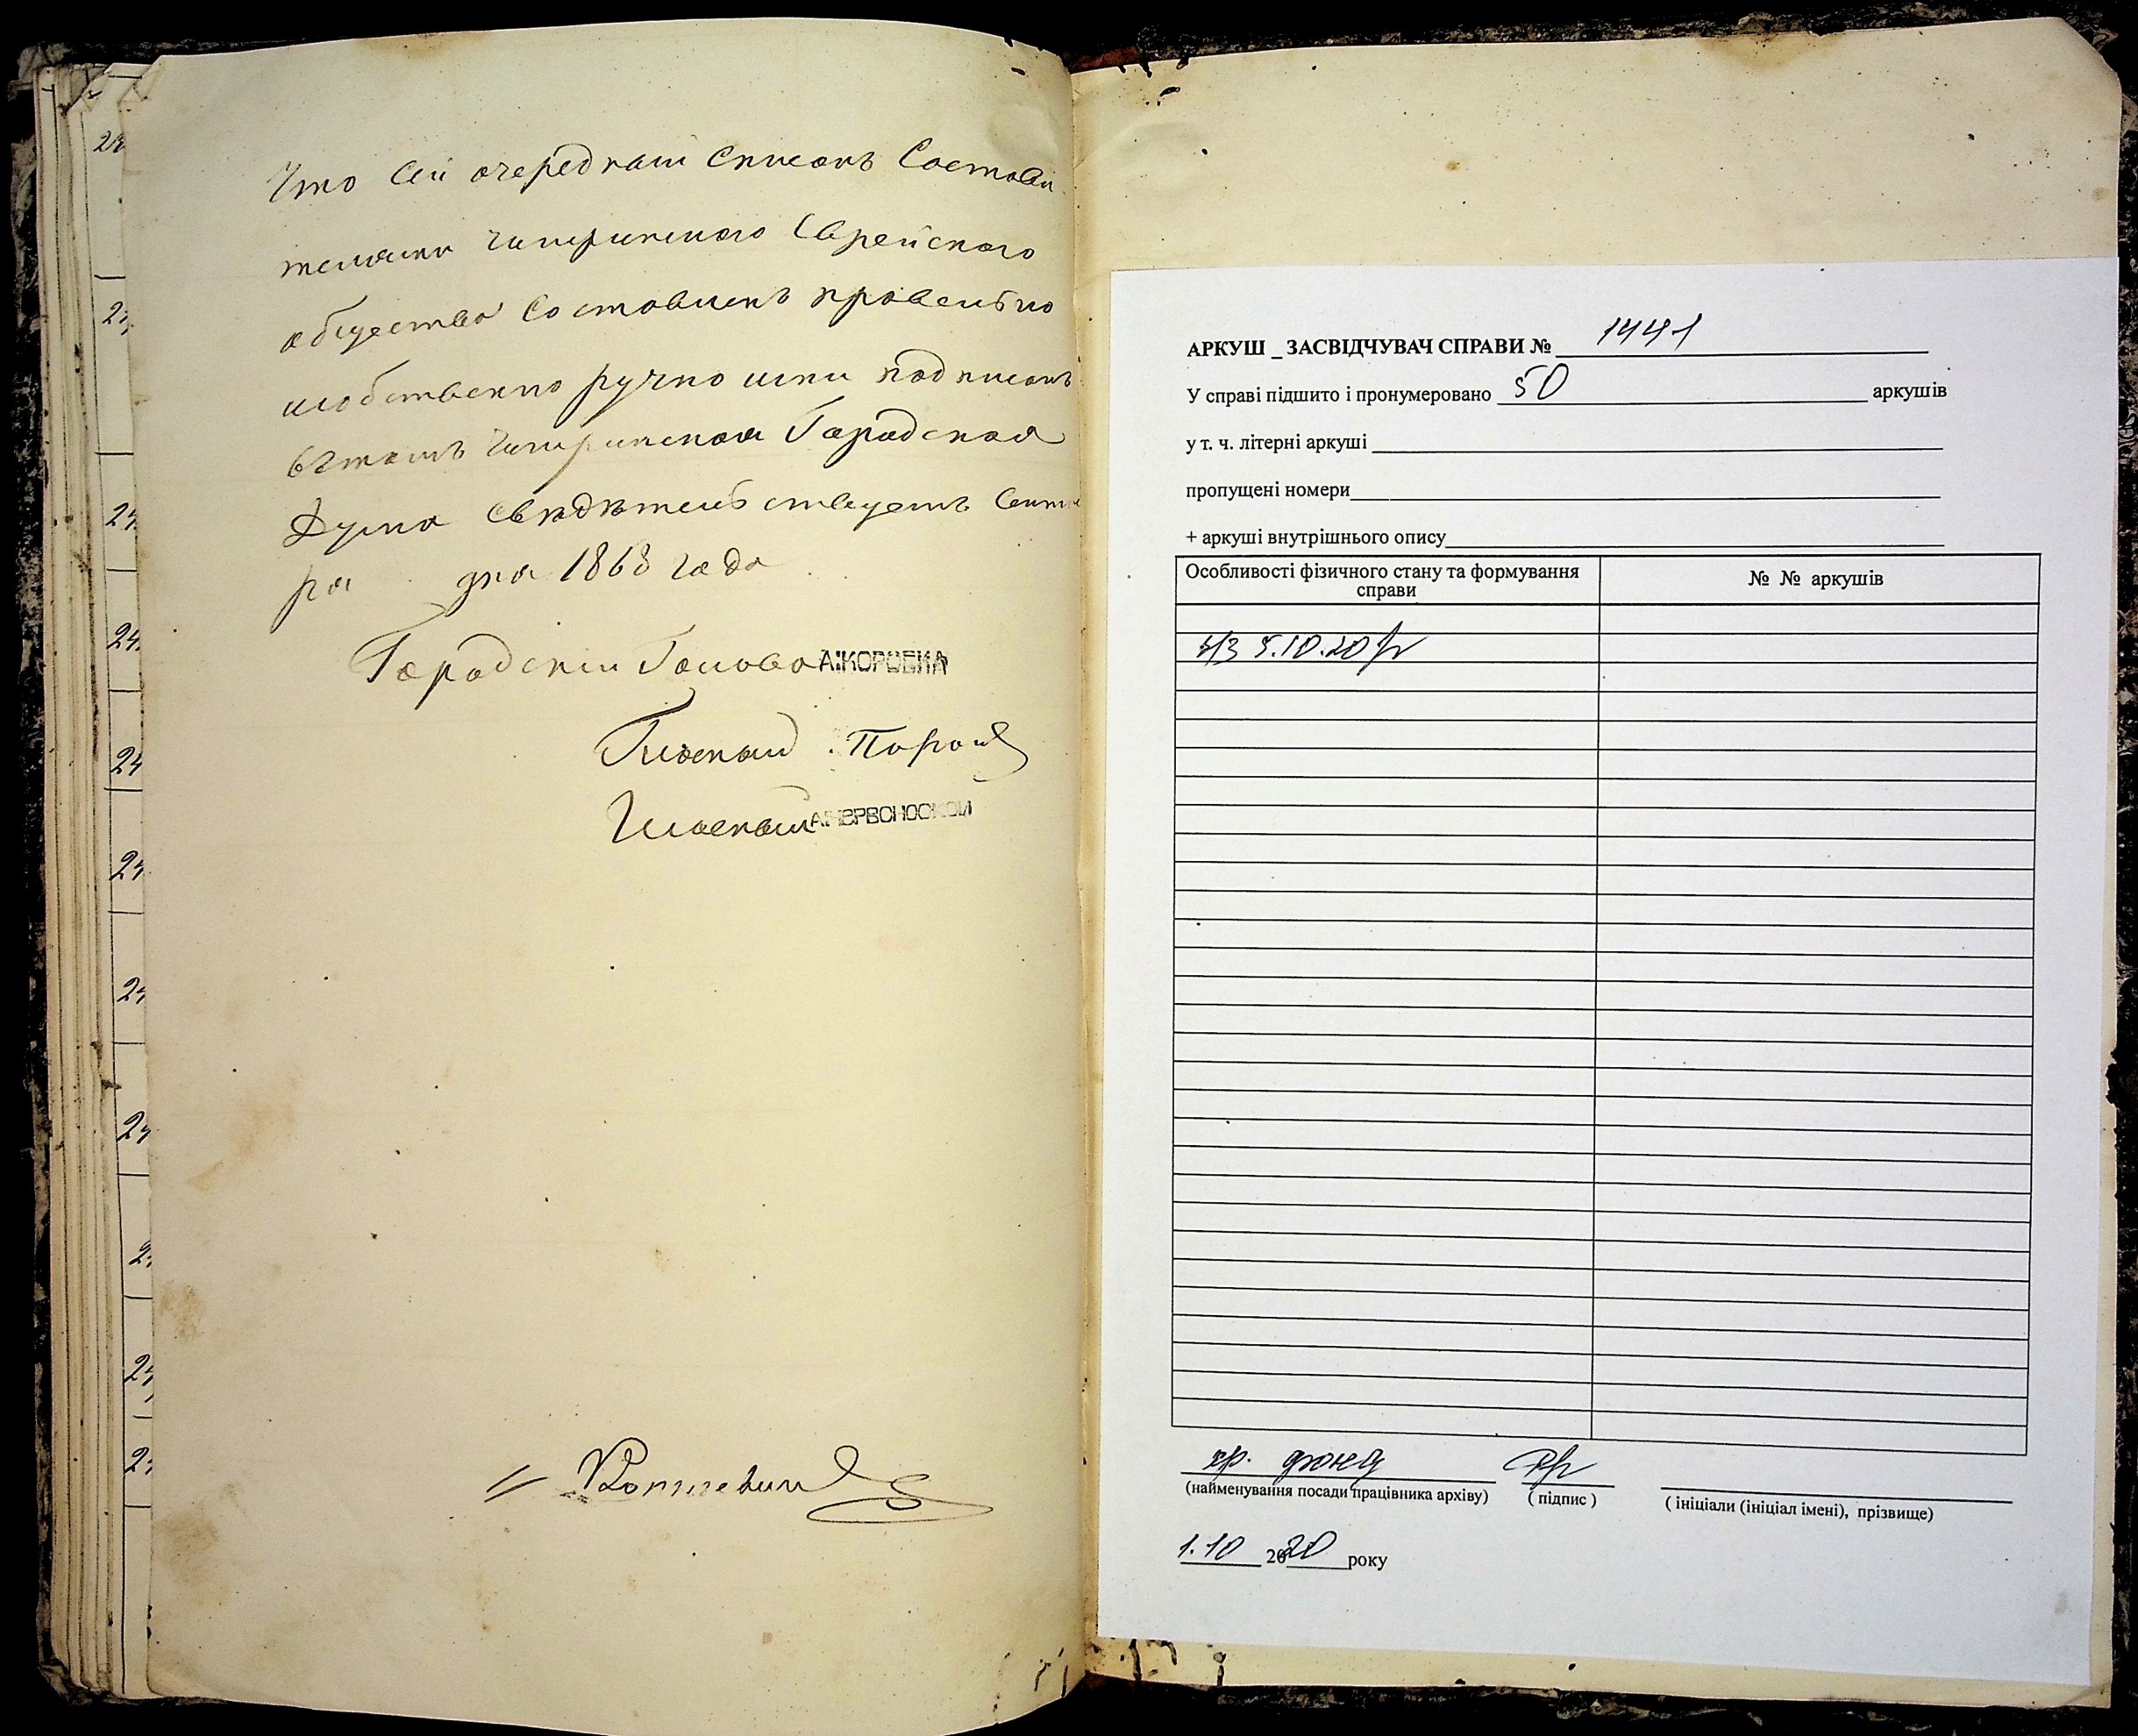 Что сей очередный Списокъ Состави
телями Чигиринского Еврейского
общества Составленъ правельно
исобственно ручно ими подписанъ
вътомъ Чигиринская Городская
Дума свидѣтельствуетъ Сентя
бря дня 1868 года
Городский Голова А:КОРОБКА
Гласный
Гласный
24
24
24
24
24
24
24
2
24
АРКУШ _ ЗАСВІДЧУВАЧ СПРАВИ № 1441
У справі підшито і пронумеровано 50 аркушів
у т. ч. літерні аркуші
пропущені номери
+ аркуші внутрішнього опису
Особливості фізичного стану та формування
справи
№ № аркушів
5.10.20
хр. фонд
(найменування посади працівника архіву) ( підпис ) ( ініціали (ініціал імені), прізвище)
1.10 2020 року